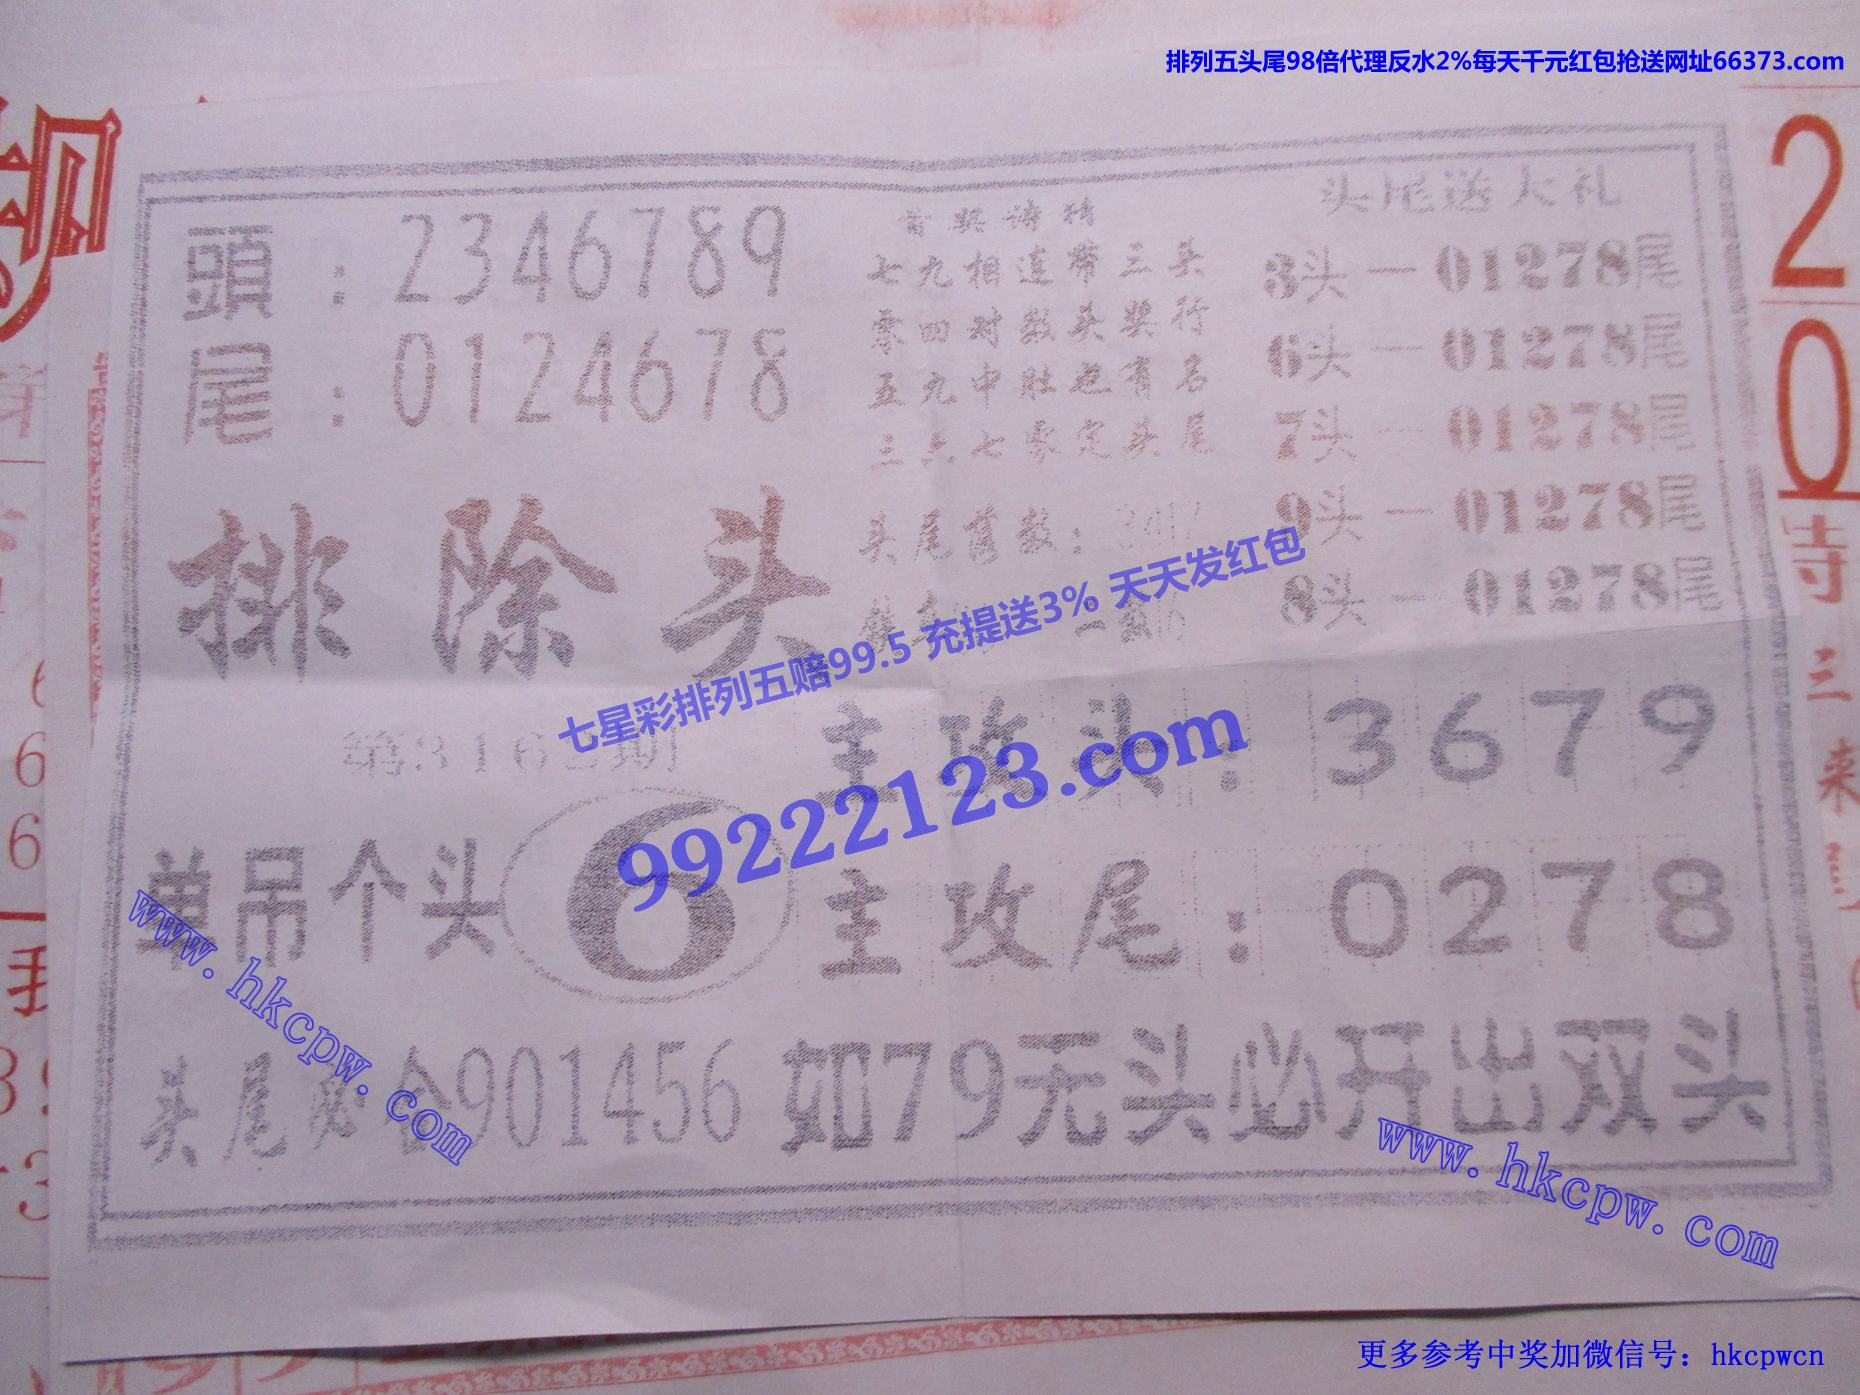 排列五头尾98倍代理反水2%每天千元红包抢送网址66373.com
頭：2346789
尾：0124678
首奖诗猜
七九相连带三头
零四对数头奖行
五九中肚起有名
三六七零定头尾
头尾送大礼
3头一01278尾
6头一01278尾
7头一01278尾
9头一01278尾
8头一01278尾
排除头
头尾着数：
七星彩排列五赔99.5 充提送3% 天天发红包
99222123.com
主攻头：3679
单吊个头 6
主攻尾：0278
头尾 901456 如79无头必开出双头
www.hkcpw.com
www.hkcpw.com
更多参考中奖加微信号：hkcpwcn
20
6
6
6